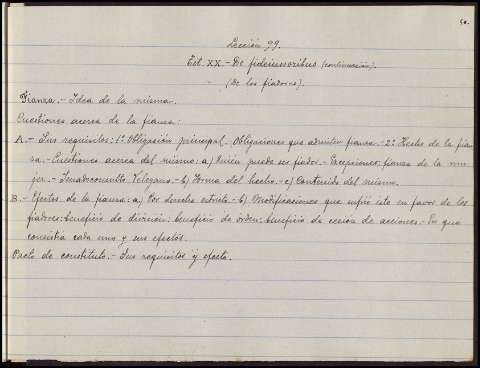 50.
Lección 99.
Tít. XX.- De fideiussoribus (continuación).
(De los fiadores).
Fianza.- Idea de la misma.
Cuestiones acerca de la fianza:
A.- Sus requisitos: 1º Obligación principal.- Obligaciones que admiten fianza.- 2º Hecho de la fian-
za.- Cuestiones acerca del mismo: a) Quién puede ser fiador.- Excepciones; fianza de la mu-
jer.- Senadoconsulto Veleyano.- b) Forma del hecho.- c) Contenido del mismo.
B.- Efectos de la fianza: a) Por derecho estricto.- b) Modificaciones que sufrió éste en favor de los
fiadores: beneficio de división; beneficio de orden; beneficio de cesión de acciones.- En qué
consistía cada uno y sus efectos.
Pacto de constituto.- Sus requisitos y efecto.